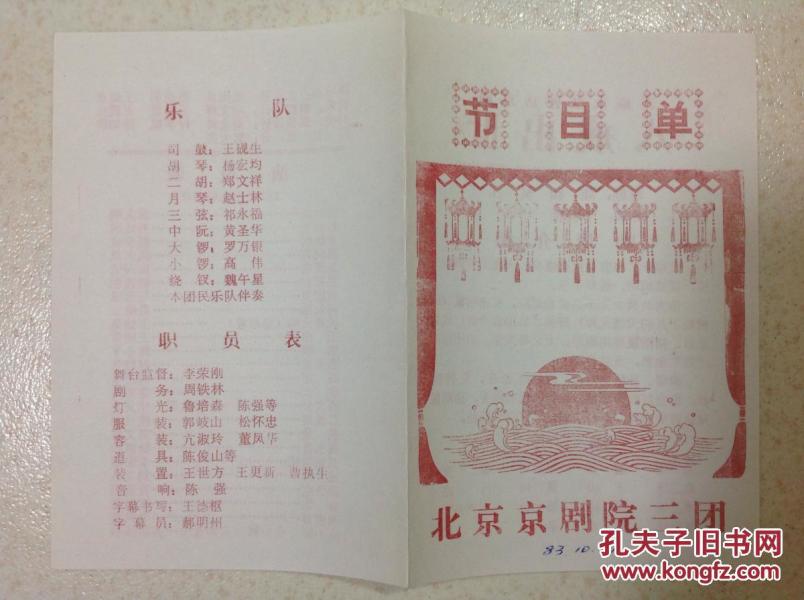 乐 队
司 鼓：王砚生
胡 琴：杨宏均
二 胡：郑文祥
月 琴：赵士林
三 弦：祁永福
中 阮：黄圣华
大 锣：罗万银
小 锣：高 伟
绕 钗：魏午星
本团民乐队伴奏
职 员 表
舞台监督：李荣刚
剧 务：周铁林
灯 光：鲁培森 陈强等
服 装：郭岐山 松怀忠
容 装：亢淑玲 董凤华
道 具：陈俊山等
装 置：王世方 王更新 曹执生
音 响：陈 强
字幕书写：王德枢
字 幕 员：郝明州
节目单
北京京剧院三团
83 10.
孔夫子旧书网
www.kongfz.com